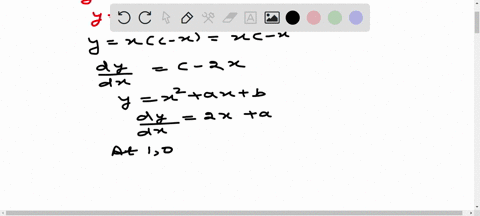 y =
y = x(c-x) = xc-x
dy/dx = c-2x
y = x²+ax+b
dy/dx = 2x+a
At 1,0